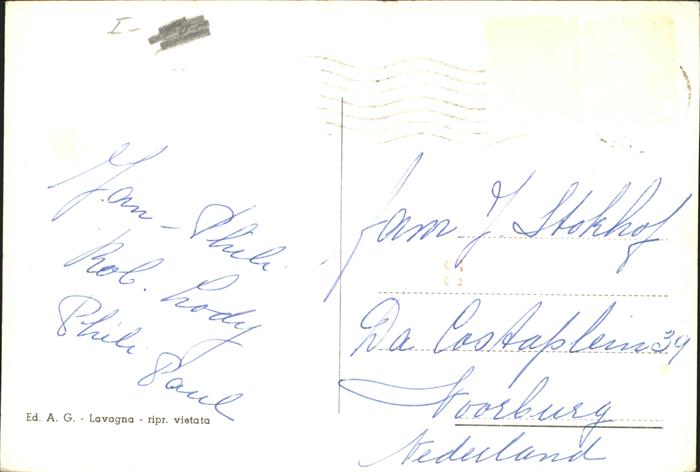 I-
Jan - Phili.
Rob. Lody
Phili Paul
Ed. A. G. - Lavagna - ripr. vietata
fam J Stokhof
Da Costaplein 39
Voorburg
Nederland